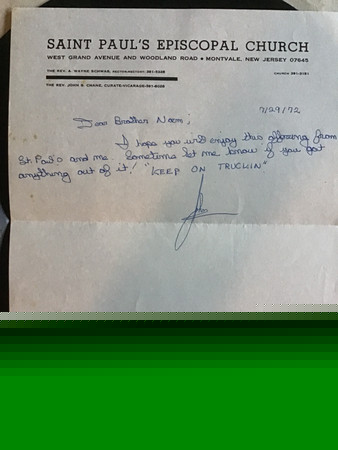 SAINT PAUL'S EPISCOPAL CHURCH
WEST GRAND AVENUE AND WOODLAND ROAD • MONTVALE, NEW JERSEY 07645
THE REV. A. WAYNE SCHWAB,
CHURCH
THE REV. JOHN B. CHANE, CURATE-VICARAGE
7/29/72
Dear Brother Naoni,
I hope you will enjoy this offering from
St. Paul's and me. Sometime let me know if you got
anything out of it! "KEEP ON TRUCKIN"